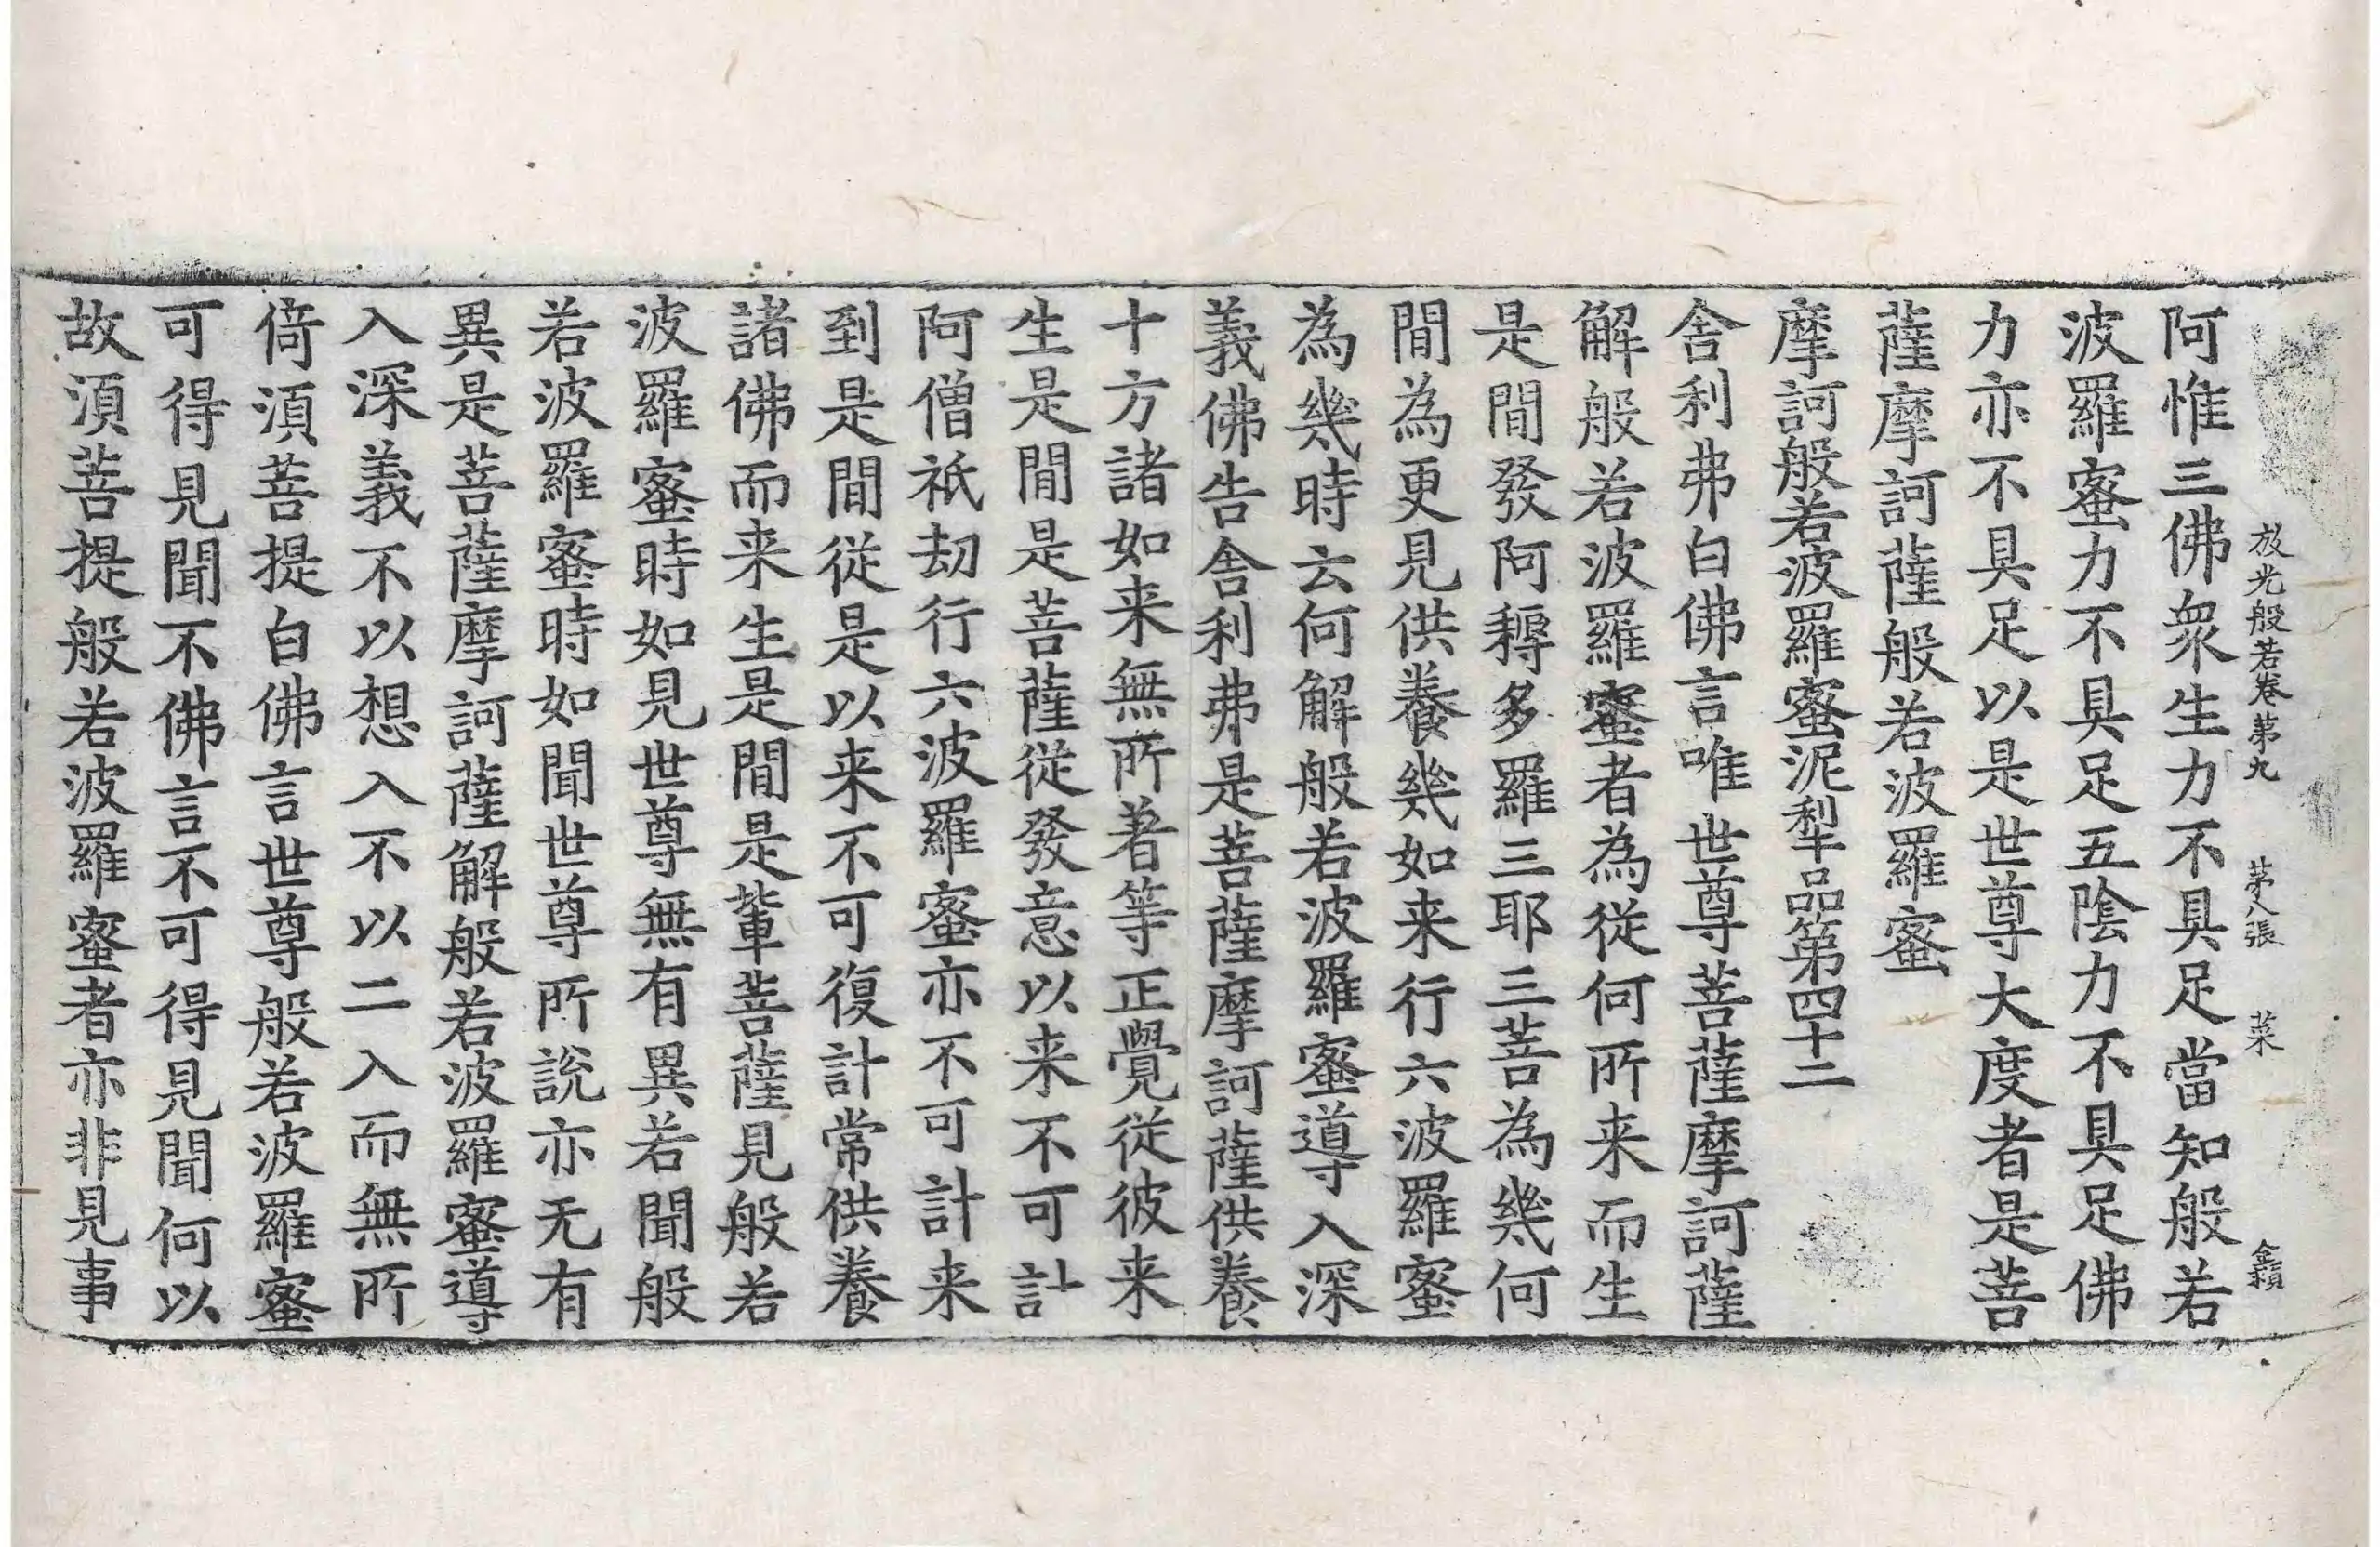 放光般若卷第九 茅八張 菜
阿惟三佛衆生力不具足當知般若
波羅蜜力不具足五陰力不具足佛
力亦不具足以是世尊大度者是菩
薩摩訶薩般若波羅蜜
摩訶般若波羅蜜泥犁品第四十二
舎利弗白佛言唯世尊菩薩摩訶薩
解般若波羅蜜者為從何所来而生
是間發阿耨多羅三耶三菩為幾何
間為更見供養幾如来行六波羅蜜
為幾時云何解般若波羅蜜導入深
義佛告舎利弗是菩薩摩訶薩供養
十方諸如来無所著等正覺從彼来
生是間是菩薩從發意以来不可計
阿僧祇劫行六波羅蜜亦不可計来
到是間從是以来不可復計常供養
諸佛而来生是間是輩菩薩見般若
波羅蜜時如見世尊無有異若聞般
若波羅蜜時如聞世尊所說亦无有
異是菩薩摩訶薩解般若波羅蜜導
入深義不以想入不以二入而無所
倚須菩提白佛言世尊般若波羅蜜
可得見聞不佛言不可得見聞何以
故須菩提般若波羅蜜者亦非見事